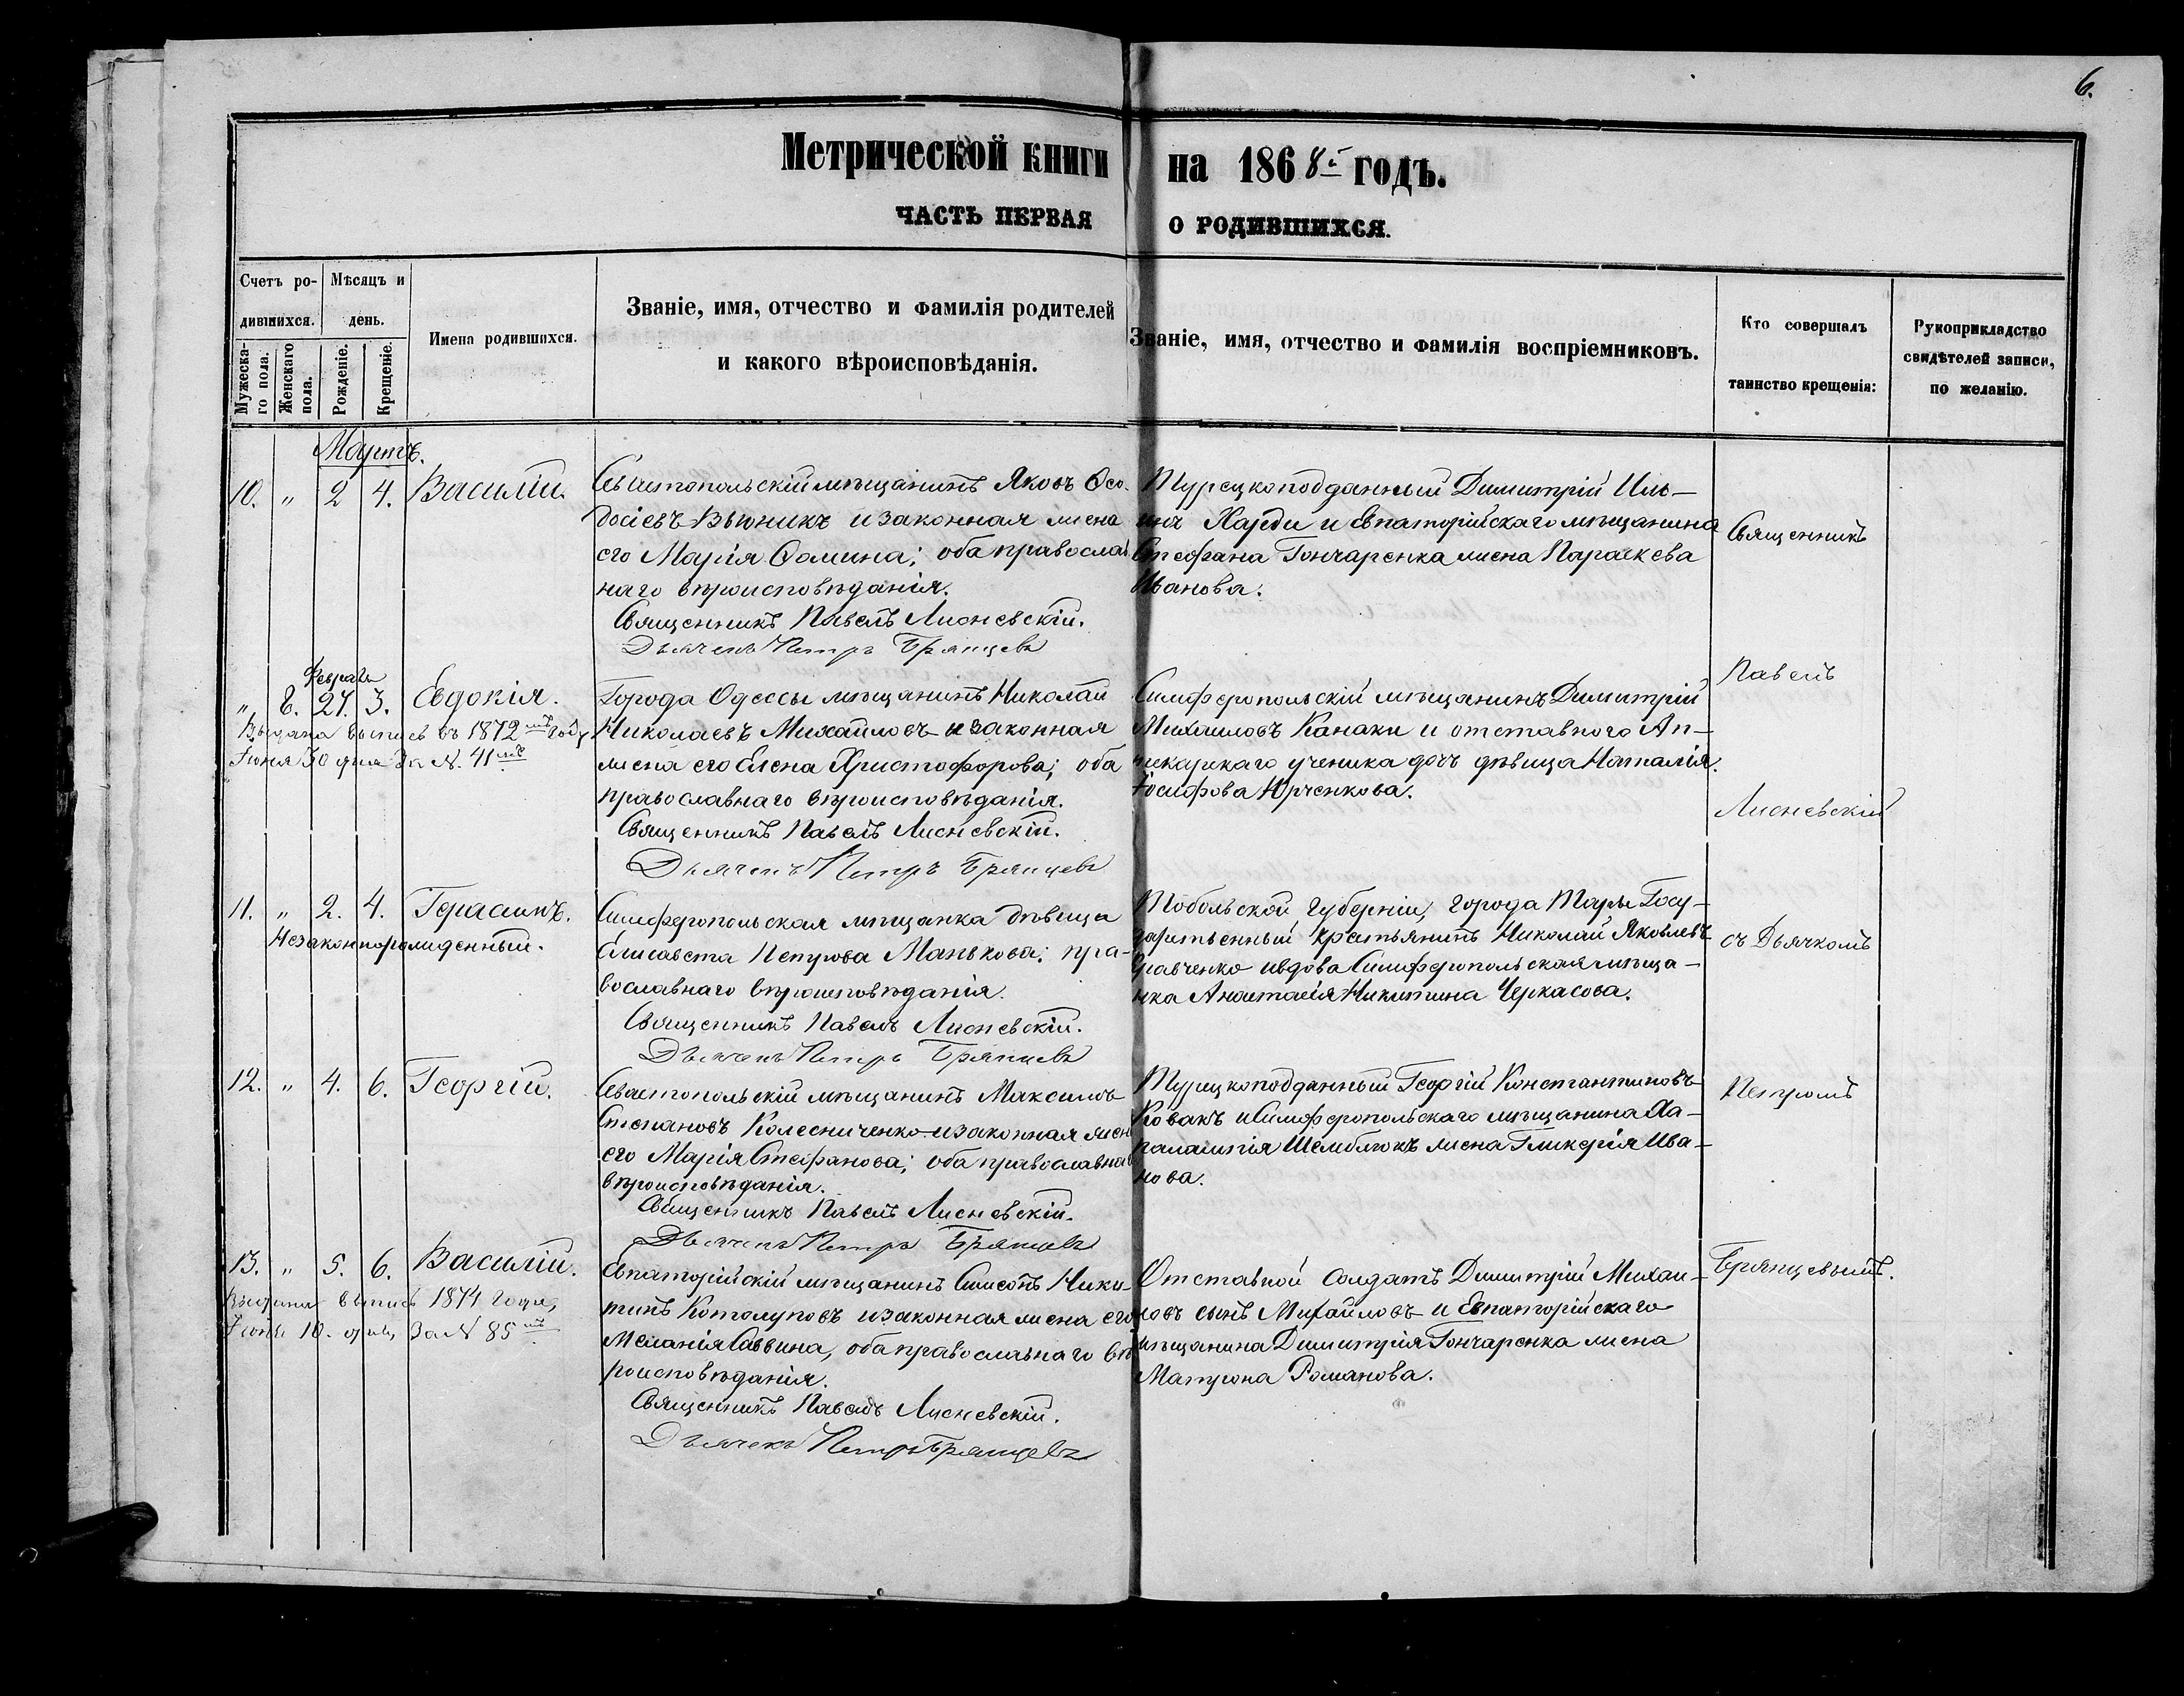 6.
Метрической книги на 1868й годъ.
ЧАСТЬ ПЕРВАЯ О РОДИВШИХСЯ.
Счетъ родившихся.
Мужескаго пола.
Женскаго пола.
Мѣсяцъ и день.
Рожденіе.
Крещеніе.
Имена родившихся.
Званіе, имя, отчество и фамилія родителей
и какого вѣроисповѣданія.
Званіе, имя, отчество и фамилія воспріемниковъ.
Кто совершалъ
таинство крещенія:
Рукоприкладство
свидѣтелей записи,
по желанію.
Мартъ.
10. " 2 4. Василій.
Севастопольскій мѣщанинъ Яковъ Ѳео-
досіевъ Вьюникъ и законная жена
его Марія Ѳомина; оба православ
наго вѣроисповѣданія.
Священникъ Павелъ Лисневскій.
Дьячекъ Петръ Брянцевъ
Турецкоподданный Димитрій Иль-
инъ Харди и Евпаторійскаго мѣщанина
Стефана Гончаренка жена Параскева
Иванова.
Февраля
" 8. 27. 3. Евдокія.
Выдана выпись въ 1872мъ году
Іюня 30 дня За N. 41мъ
Города Одессы мѣщанинъ Николай
Николаевъ Михайловъ и законная
жена его Елена Христофорова; оба
православнаго вѣроисповѣданія.
Священникъ Павелъ Лисневскій.
Дьячекъ Петръ Брянцевъ
Симферопольскій мѣщанинъ Димитрій
Михаиловъ Канаки и отставного Ап-
текарскаго ученика дочь дѣвица Наталія
Іосифова Юрченкова.
11. " 2. 4. Герасимъ.
Незаконнорожденный.
Симферопольская мѣщанка дѣвица
Елисавета Петрова Манькова; пра-
вославнаго вѣроисповѣданія.
Священникъ Павелъ Лисневскій.
Дьячекъ Петръ Брянцевъ
Тобольской Губерніи, города Тары Госу-
дарственный крестьянинъ Николай Яковлевъ
Кравченко и вдова Симферопольская мѣща-
нка Анастасія Никитина Черкасова.
12. " 4. 6. Георгій.
Севастопольскій мѣщанинъ Максимъ
Степановъ Колесниченко и законная жен
его Марія Стефанова; оба православна
вѣроисповѣданія.
Священникъ Павелъ Лисневскій.
Дьячекъ Петръ Брянцевъ
Турецкоподданный Георгій Константиновъ
Ковакъ и Симферопольскаго мѣщанина Ха-
ралампія Шемблюкъ жена Гликерія Ива-
нова.
13. " 5. 6. Василій.
Выдана выпись 1874 года,
Іюня 10. дня, За N 85мъ
Евпаторійскій мѣщанинъ Симеонъ Ники-
тинъ Котолуповъ и законная жена его
Меланія Саввина, оба православнаго вѣ
роисповѣданія.
Священникъ Павелъ Лисневскій.
Дьячекъ Петръ Брянцевъ
Отставной солдатъ Димитрій Михаи-
ловъ сынъ Михайловъ и Евпаторійскаго
мѣщанина Димитрія Гончаренка жена
Матрона Романова.
Священникъ
Павелъ
Лисневскій
съ Дьячкомъ
Петромъ
Брянцевымъ.